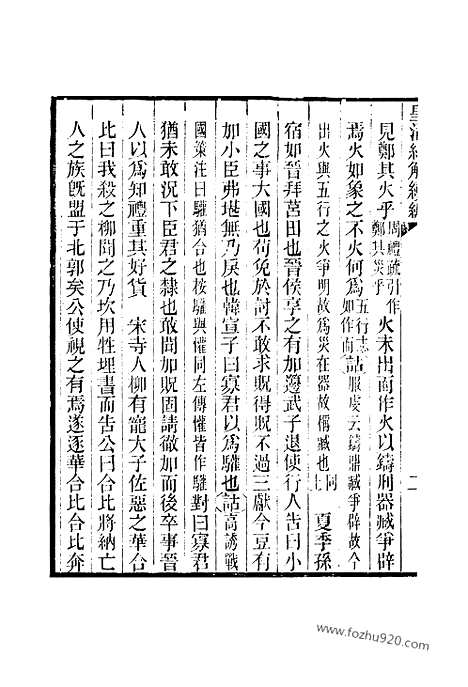 皇清經解續編
二
見鄭其火乎周禮疏引作鄭其災乎火未出而作火以鑄刑器藏爭辟
焉火如象之不火何為五行志如作而詁服虔云鑄鼎藏爭辟故今
出火與五行之火爭明故為災在器故稱藏也同上夏季孫
宿如晉拜莒田也晉侯享之有加籩武子退使行人告曰小
國之事大國也苟免於討不敢求貺得貺不過三獻今豆有
加小臣弗堪無乃戾也韓宣子曰寡君以為驩也詁高誘戰
國策注曰驩猶合也按驩與懽同左傳懽皆作驩對曰寡君
猶未敢況下臣君之隸也敢聞加貺固請徹加而後卒事晉
人以為知禮重其好貨 宋寺人柳有寵大子佐惡之華合
比曰我殺之柳聞之乃坎用牲埋書而告公曰合比將納亡
人之族旣盟于北郭矣公使視之有焉遂逐華合比合比奔
www.fozhu920.com